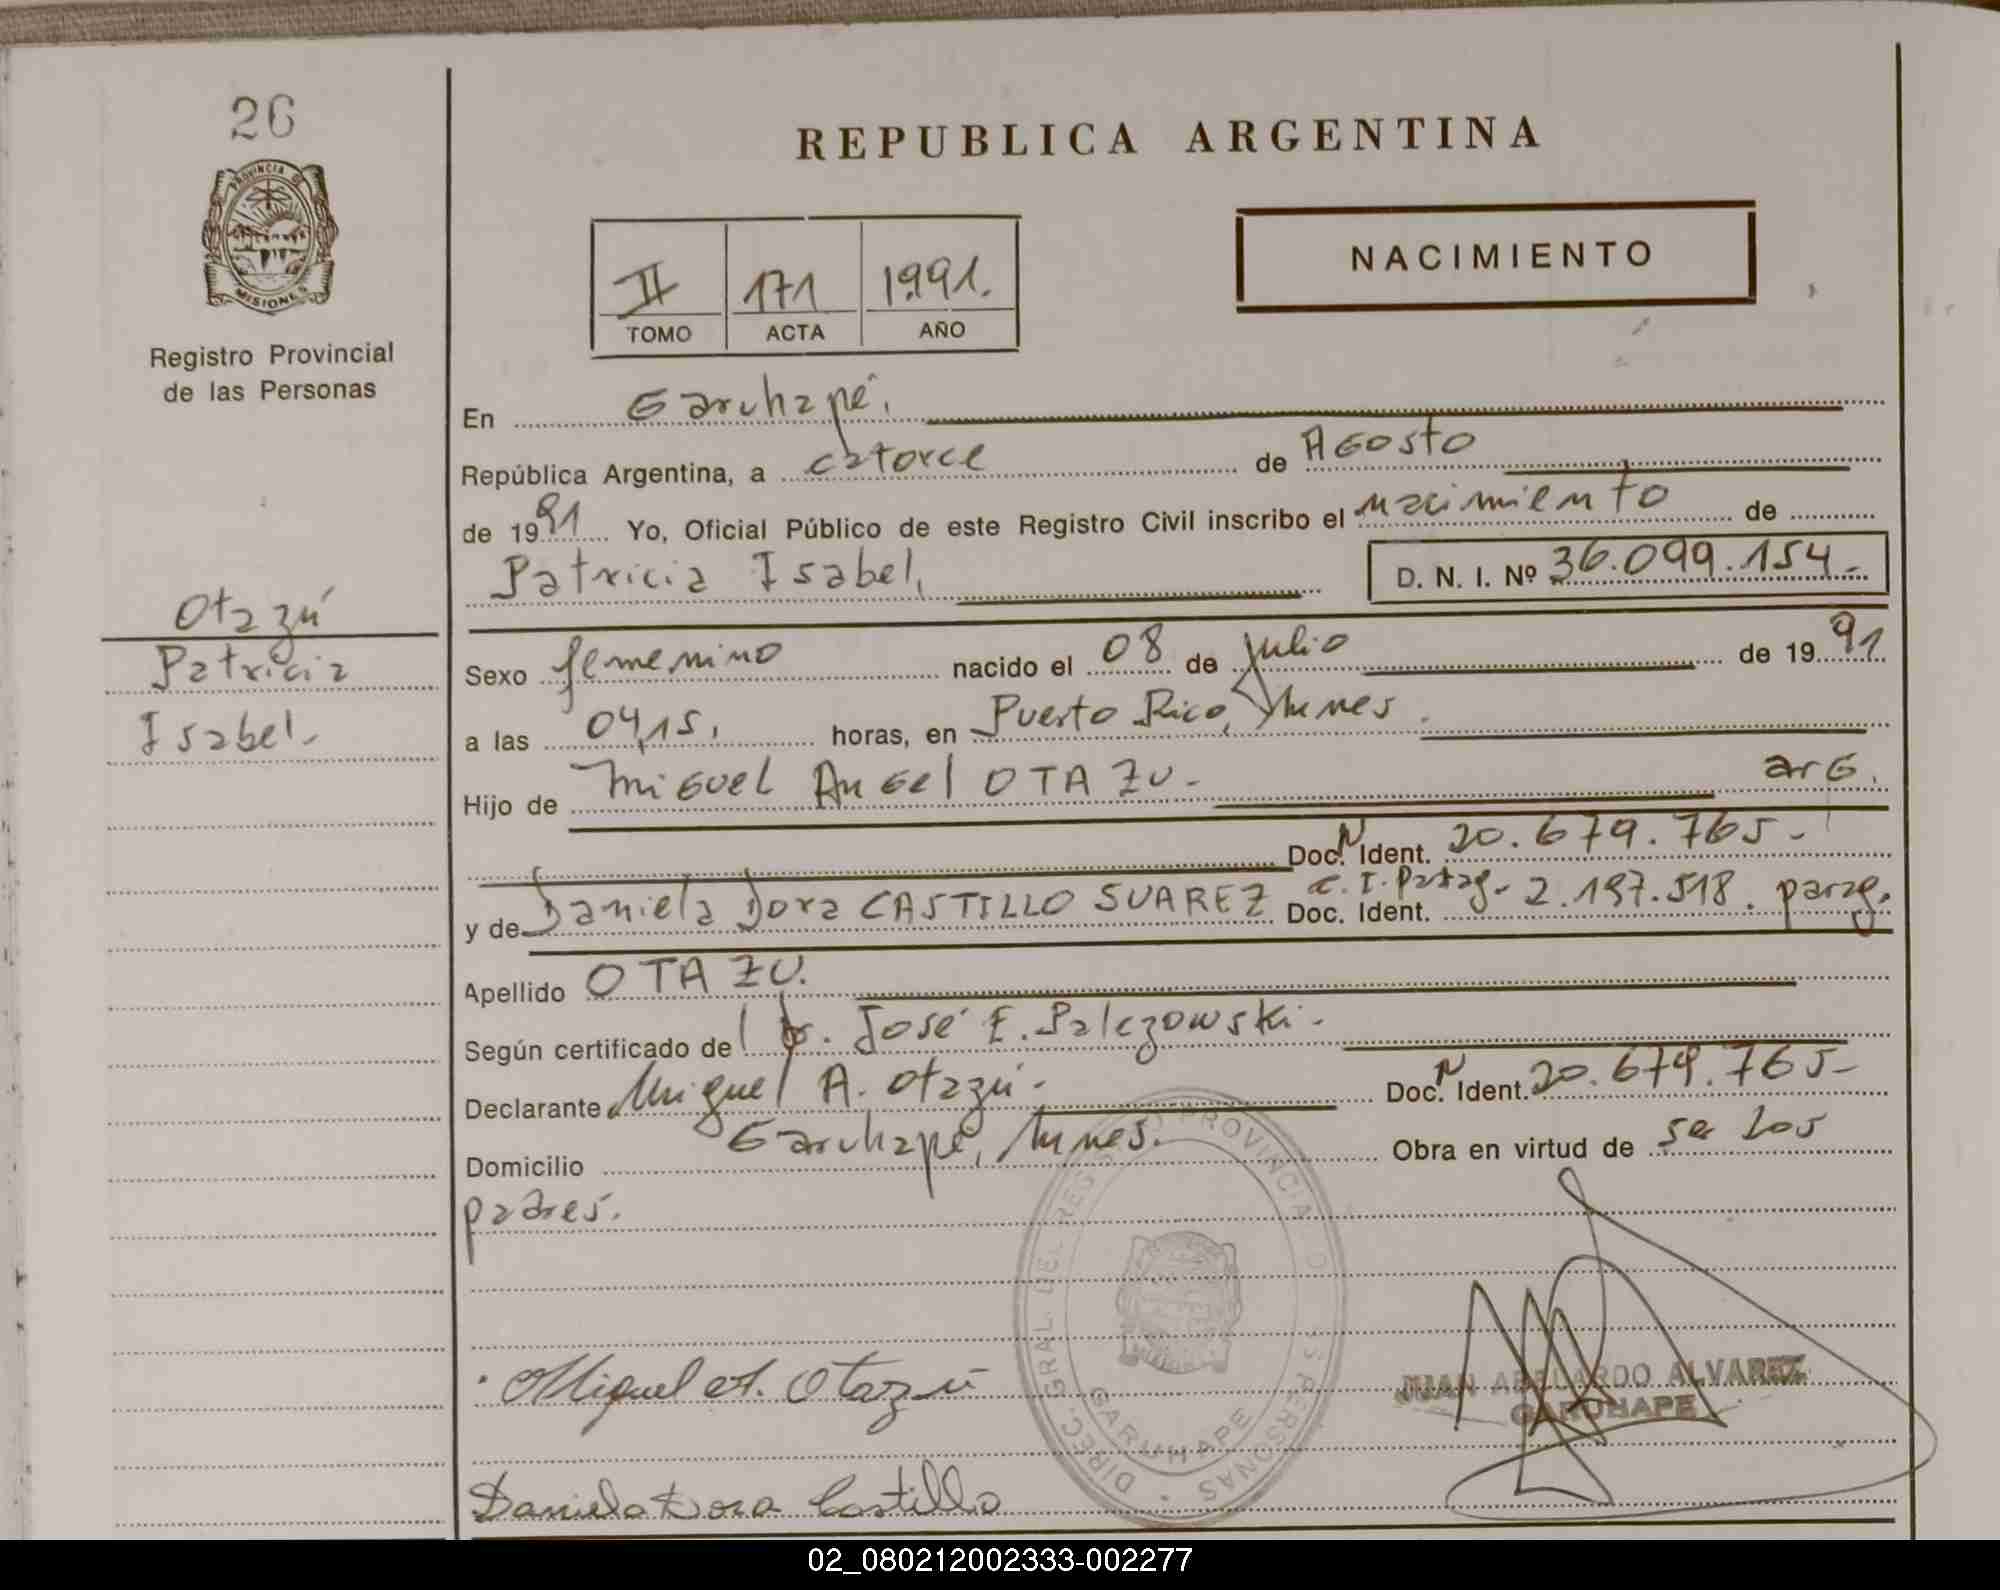 26
PROVINCIA DE
MISIONES
Registro Provincial
de las Personas
Otazú
Patricia
Isabel.-
REPUBLICA ARGENTINA
NACIMIENTO
II 171 1991.
TOMO ACTA AÑO
En Garuhapé.
República Argentina, a catorce de AGosto
de 1991 Yo, Oficial Público de este Registro Civil inscribo el nacimiento de
Patricia Isabel, D. N. I. Nº 36.099.154.-
Sexo femenino nacido el 08 de Julio de 1991
a las 04,15, horas, en Puerto Rico, Mnes.
Hijo de Miguel Angel OTAZU.- arG.
Doc. N Ident. 20.679.765-
y de Daniela Dora CASTILLO SUAREZ Doc. Ident. C.I. Parag- 2.197.518. parag.
Apellido OTAZU.
Según certificado del Dr. José E. Palczowski.-
Declarante Miguel A. Otazú.- Doc. N Ident. 20.679.765-
Domicilio Garuhapé, Mnes. Obra en virtud de ser los
padres.
DIREC. GRAL. DEL REGISTRO PROVINCIAL DE LAS PERSONAS
GARUHAPE
Miguel A. Otazú
JUAN ABELARDO ALVAREZ
GARUHAPE
Daniela Dora Castillo
02_080212002333-002277